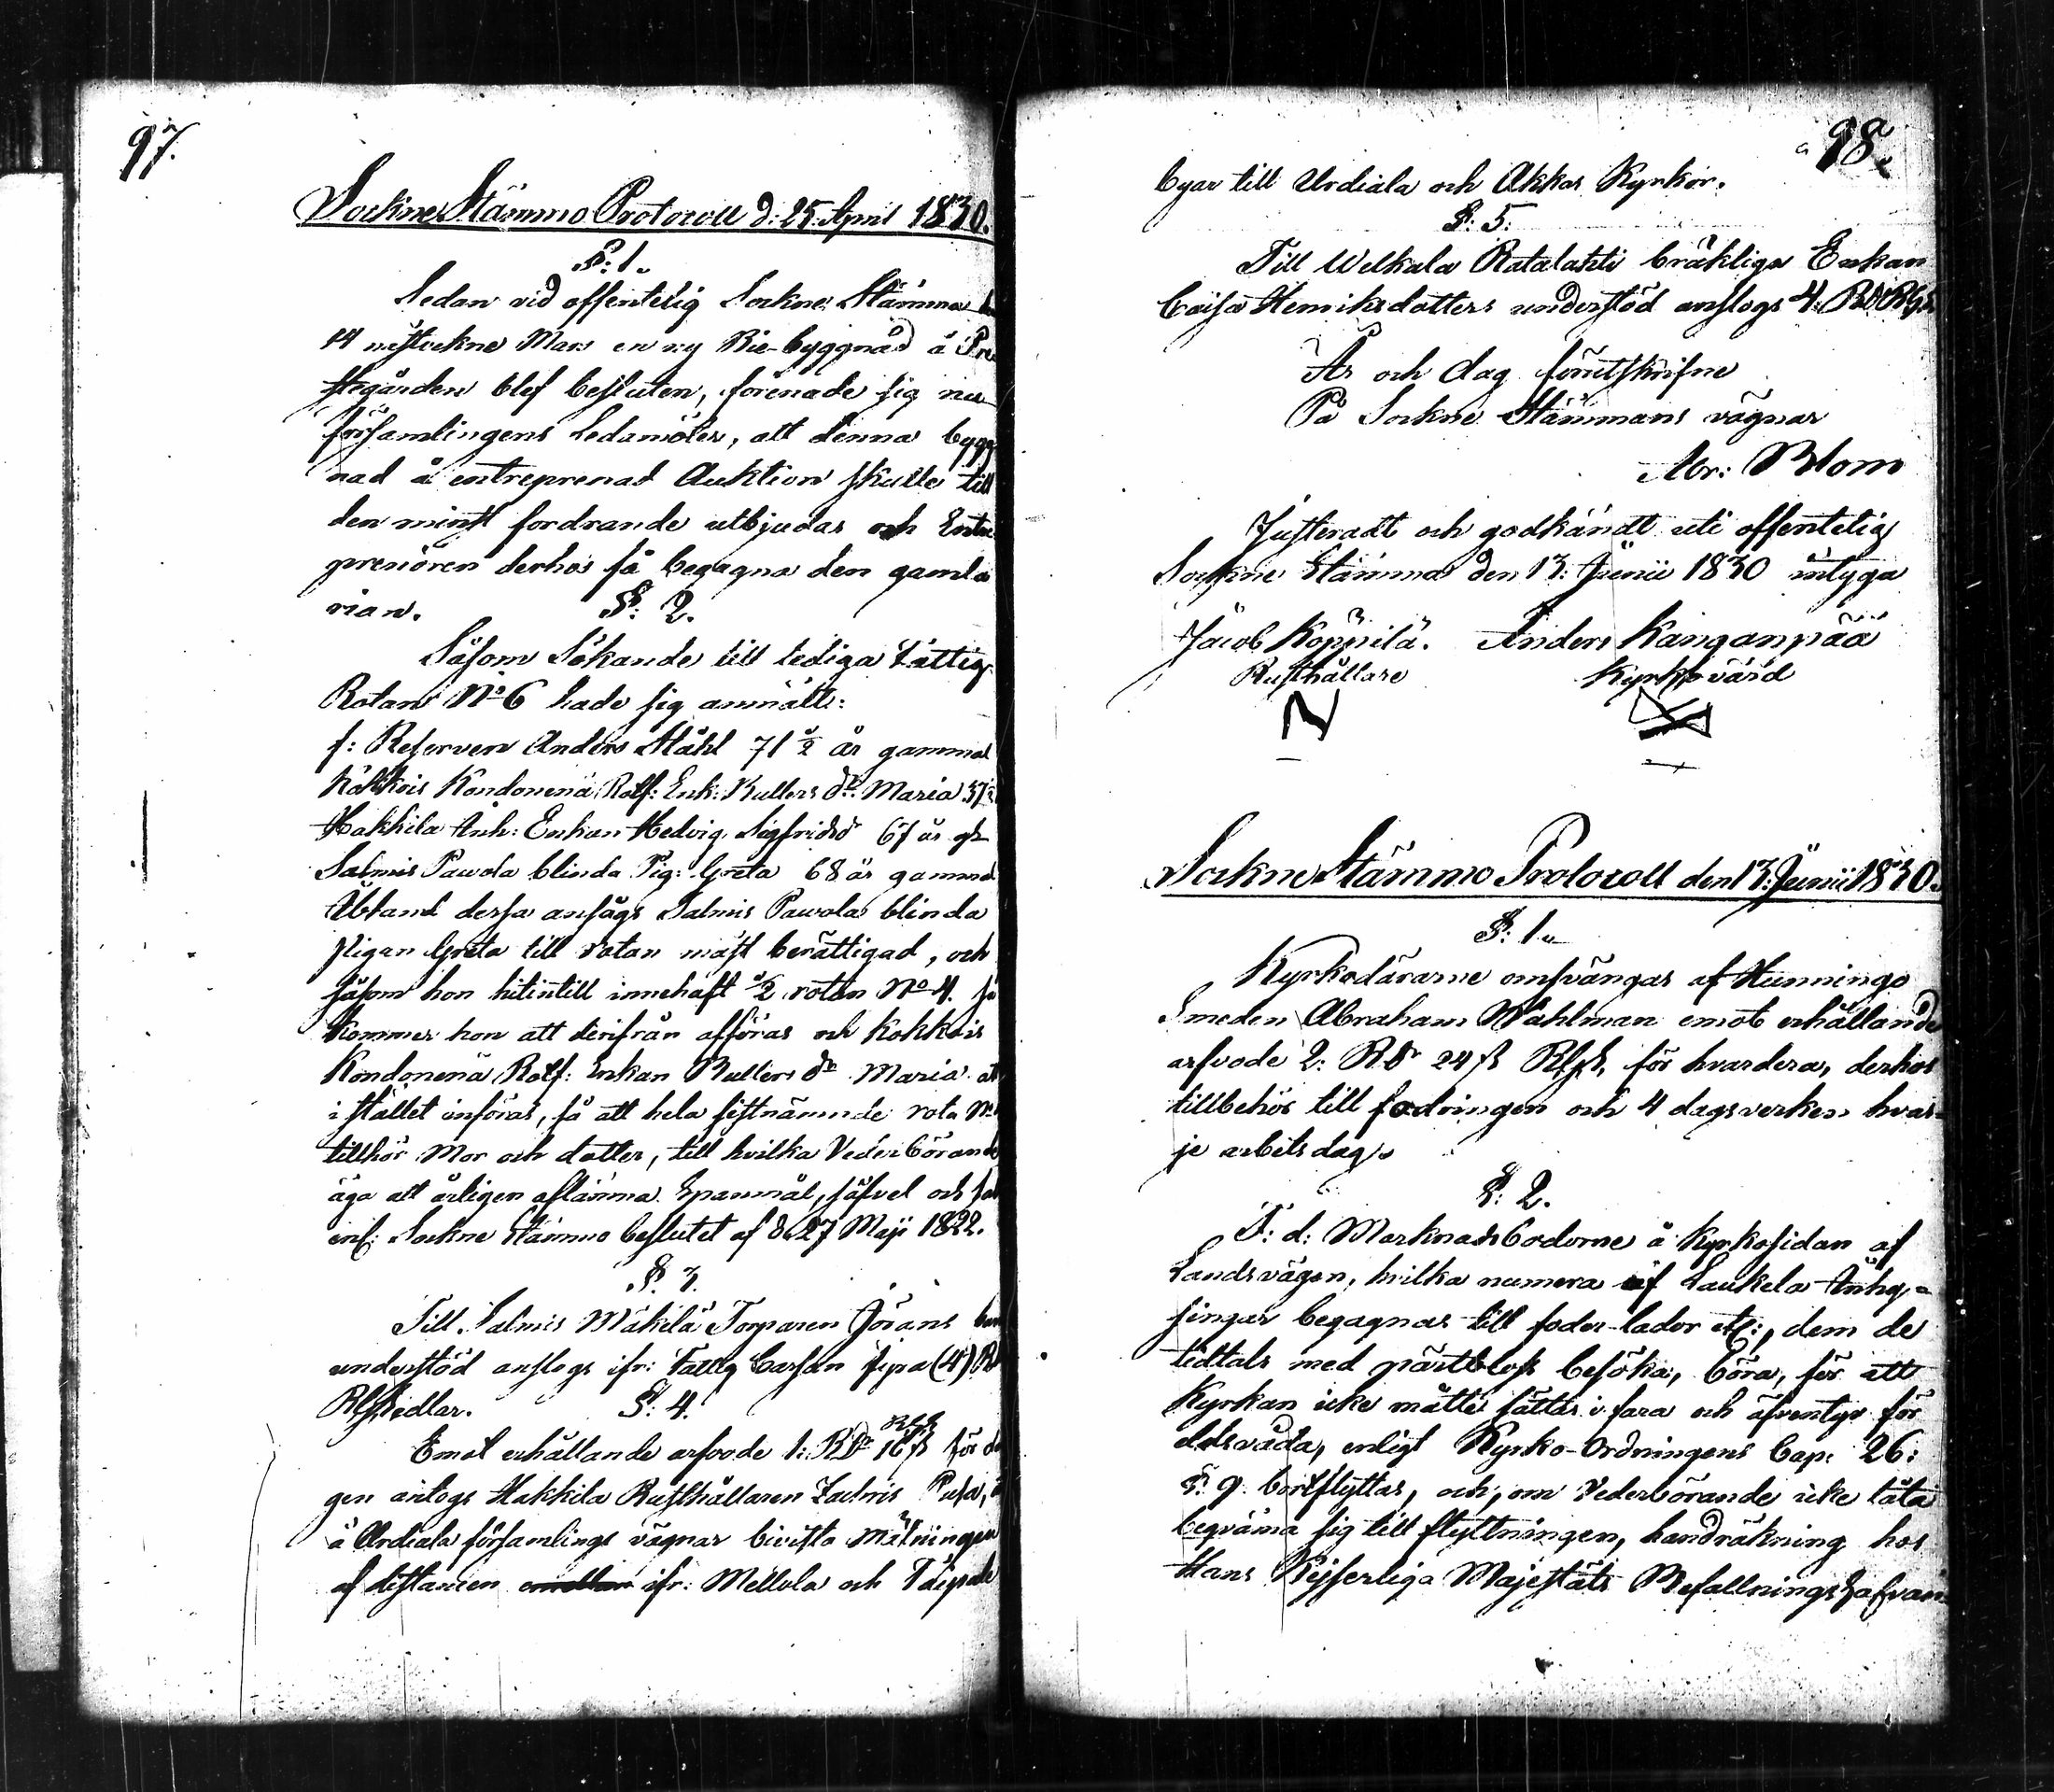 97.
Sockne Stämmo Protocoll d: 25. April 1830.
§: 1.
Sedan vid offentelig Sockne Stämma
14 nästvekne Mars en ny Rie-byggnad å Pre
stegården blef besluten, förenade sig nu
församlingens Ledamöter, att denna bygg
nad å entreprenad Auktion skulle till
den minst fordrande utbjudas och Entre
prenören derhos få begagna den gamla
rian.
§: 2.
Såsom Sökande till lediga Fattig
Rotan No 6 hade sig anmält:
f: Reserven Anders Ståhl 71 1/2 år gammal
Kokkois Kondonena Rotf: Enk: Bullers dr. Maria 37
Hakkila Inh: Enkan Hedvig Sigfridsdr 67 år gl
Salmis Pawola blinda Pig: Greta 68 år gammal
Ibland dessa ansågs Salmis Pawolas blinda
Pigan Greta till rotan mäst berättigad, och
såsom hon hitintill innehaft 1/2 rotan No 4. så
kommer hon att derifrån afföras och Kokkois
Kondonena Rotf: Enkan Bullers dr Maria att
i stället införas, så att hela sistnämnde rota No
tillhör Mor och dotter, till hvilka Vederbörande
äga att årligen aflämna Spanmål, såfvel och
enl: Sockne Stämmo beslutet af d. 27 Maji 1822.
§. 3.
Till Salmis Mäkilä Torparen Jörans
understöd anslogs ifr: Fattig Cassan fyra (4) R
RGSedlar.
§: 4.
Emot erhållande arfvode 1: RDr 16 ß RGS för da
gen antogs Hakkila Rusthållaren Zachris Pusa,
å Urdiala församlings vägnar bivista Mätningen
af distancen emellan ifr: Mellola och Taipale
98.
byar till Urdiala och Akkas Kyrkor.
§: 5.
Till Welkala Ratalahti bräkliga Enkan
Caisa Henriksdotters understöd anslogs 4: RD RGS.
År och dag förutskrifne
På Sockne Stämmans vägnar
Abr: Blom
Justeradt och godkändt uti offentelig
Sockne Stämma den 13: Junii 1830 intyga
Jacob Köppilä. Anders Kanganpää
Rusthållare Kyrkovärd
Sockne Stämmo Protocoll den 13: Junii 1830.
§: 1.
Kyrkodörarne omsvängas af Hunningo
Smeden Abraham Wahlman emot erhållande
arfvode 2: RDr 24 ß RGS. för hvardera, derhos
tillbehör till fodringen och 4 dagsverken hvar-
je arbetsdag.
§: 2.
F: d: Marknadsbodorne å Kyrkosidan af
Landsvägen, hvilka numera af Laukela Inhy-
singar begagnas till foder-lador etc:, dem de
tidtals med pärtbloss besöka, böra, för att
Kyrkan icke måtte sättas i fara och äfventyr för
eldsvåda, enligt Kyrko-Ordningens Cap: 26:
§. 9. bortflyttas, och, om Vederbörande icke låta
beqväma sig till flyttningen, handräkning hos
Hans Kejserliga Majestäts Befallningshafvan